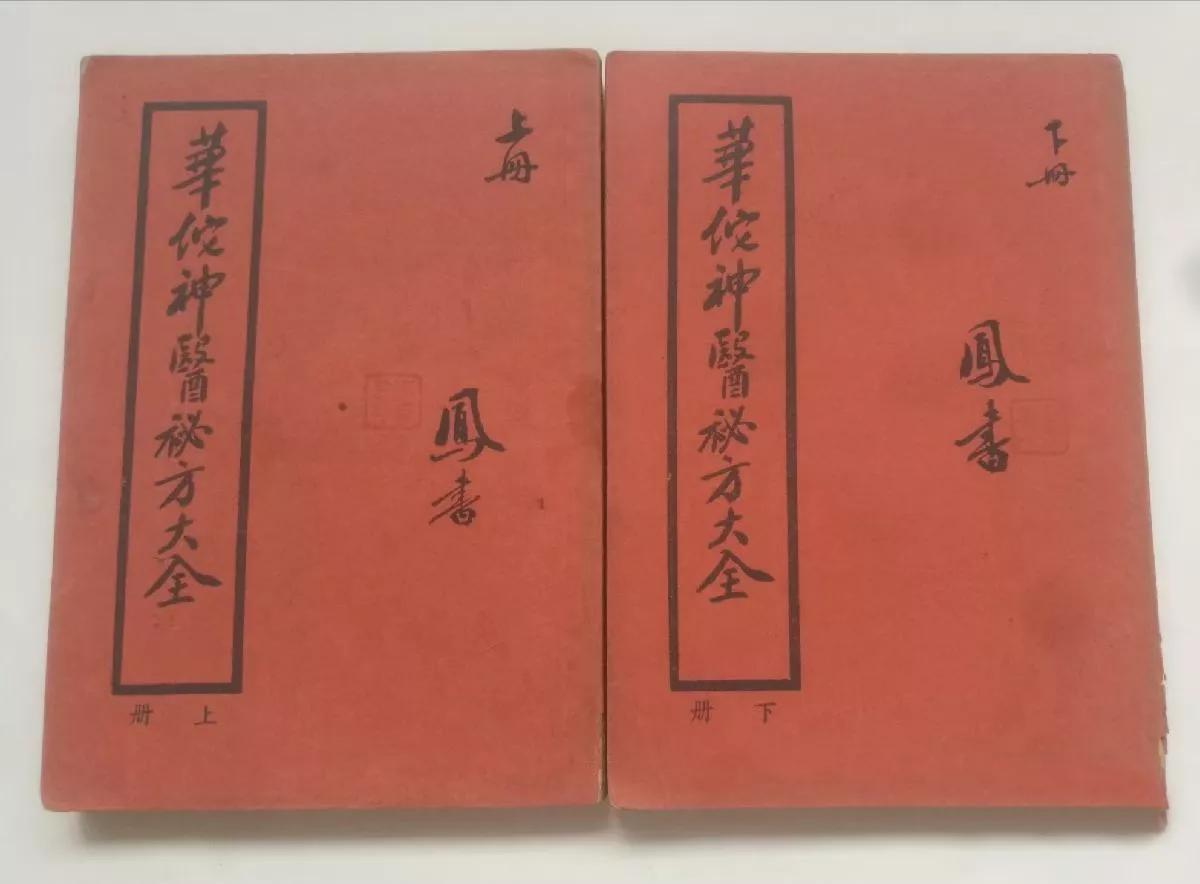 上冊
華佗神醫秘方大全
鳳書
上册
下冊
華佗神醫秘方大全
鳳書
下册